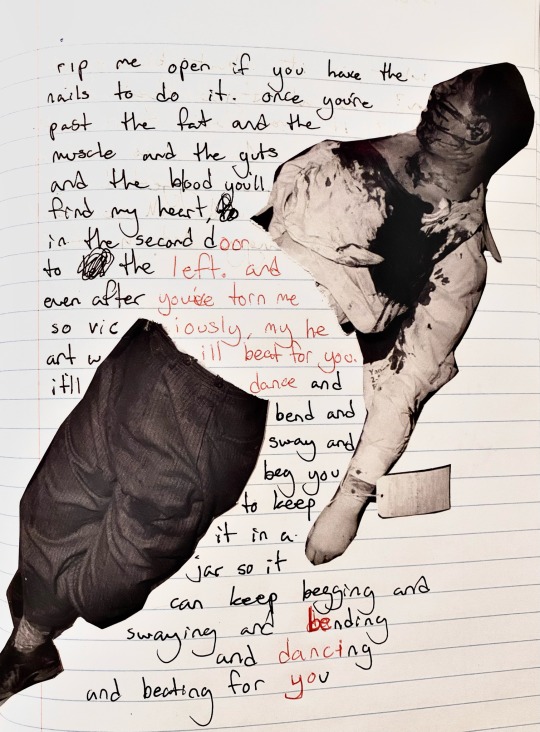 rip me open if you have the
nails to do it. once you're
past the fat and the
muscle and the guts
and the blood you'll
find my heart,
in the second door
to the left. and
even after you've torn me
so vic iously, my he
art w ill beat for you.
it'll dance and
bend and
sway and
beg you
to keep
it in a
jar so it
can keep begging and
swaying and bending
and dancing
and beating for you